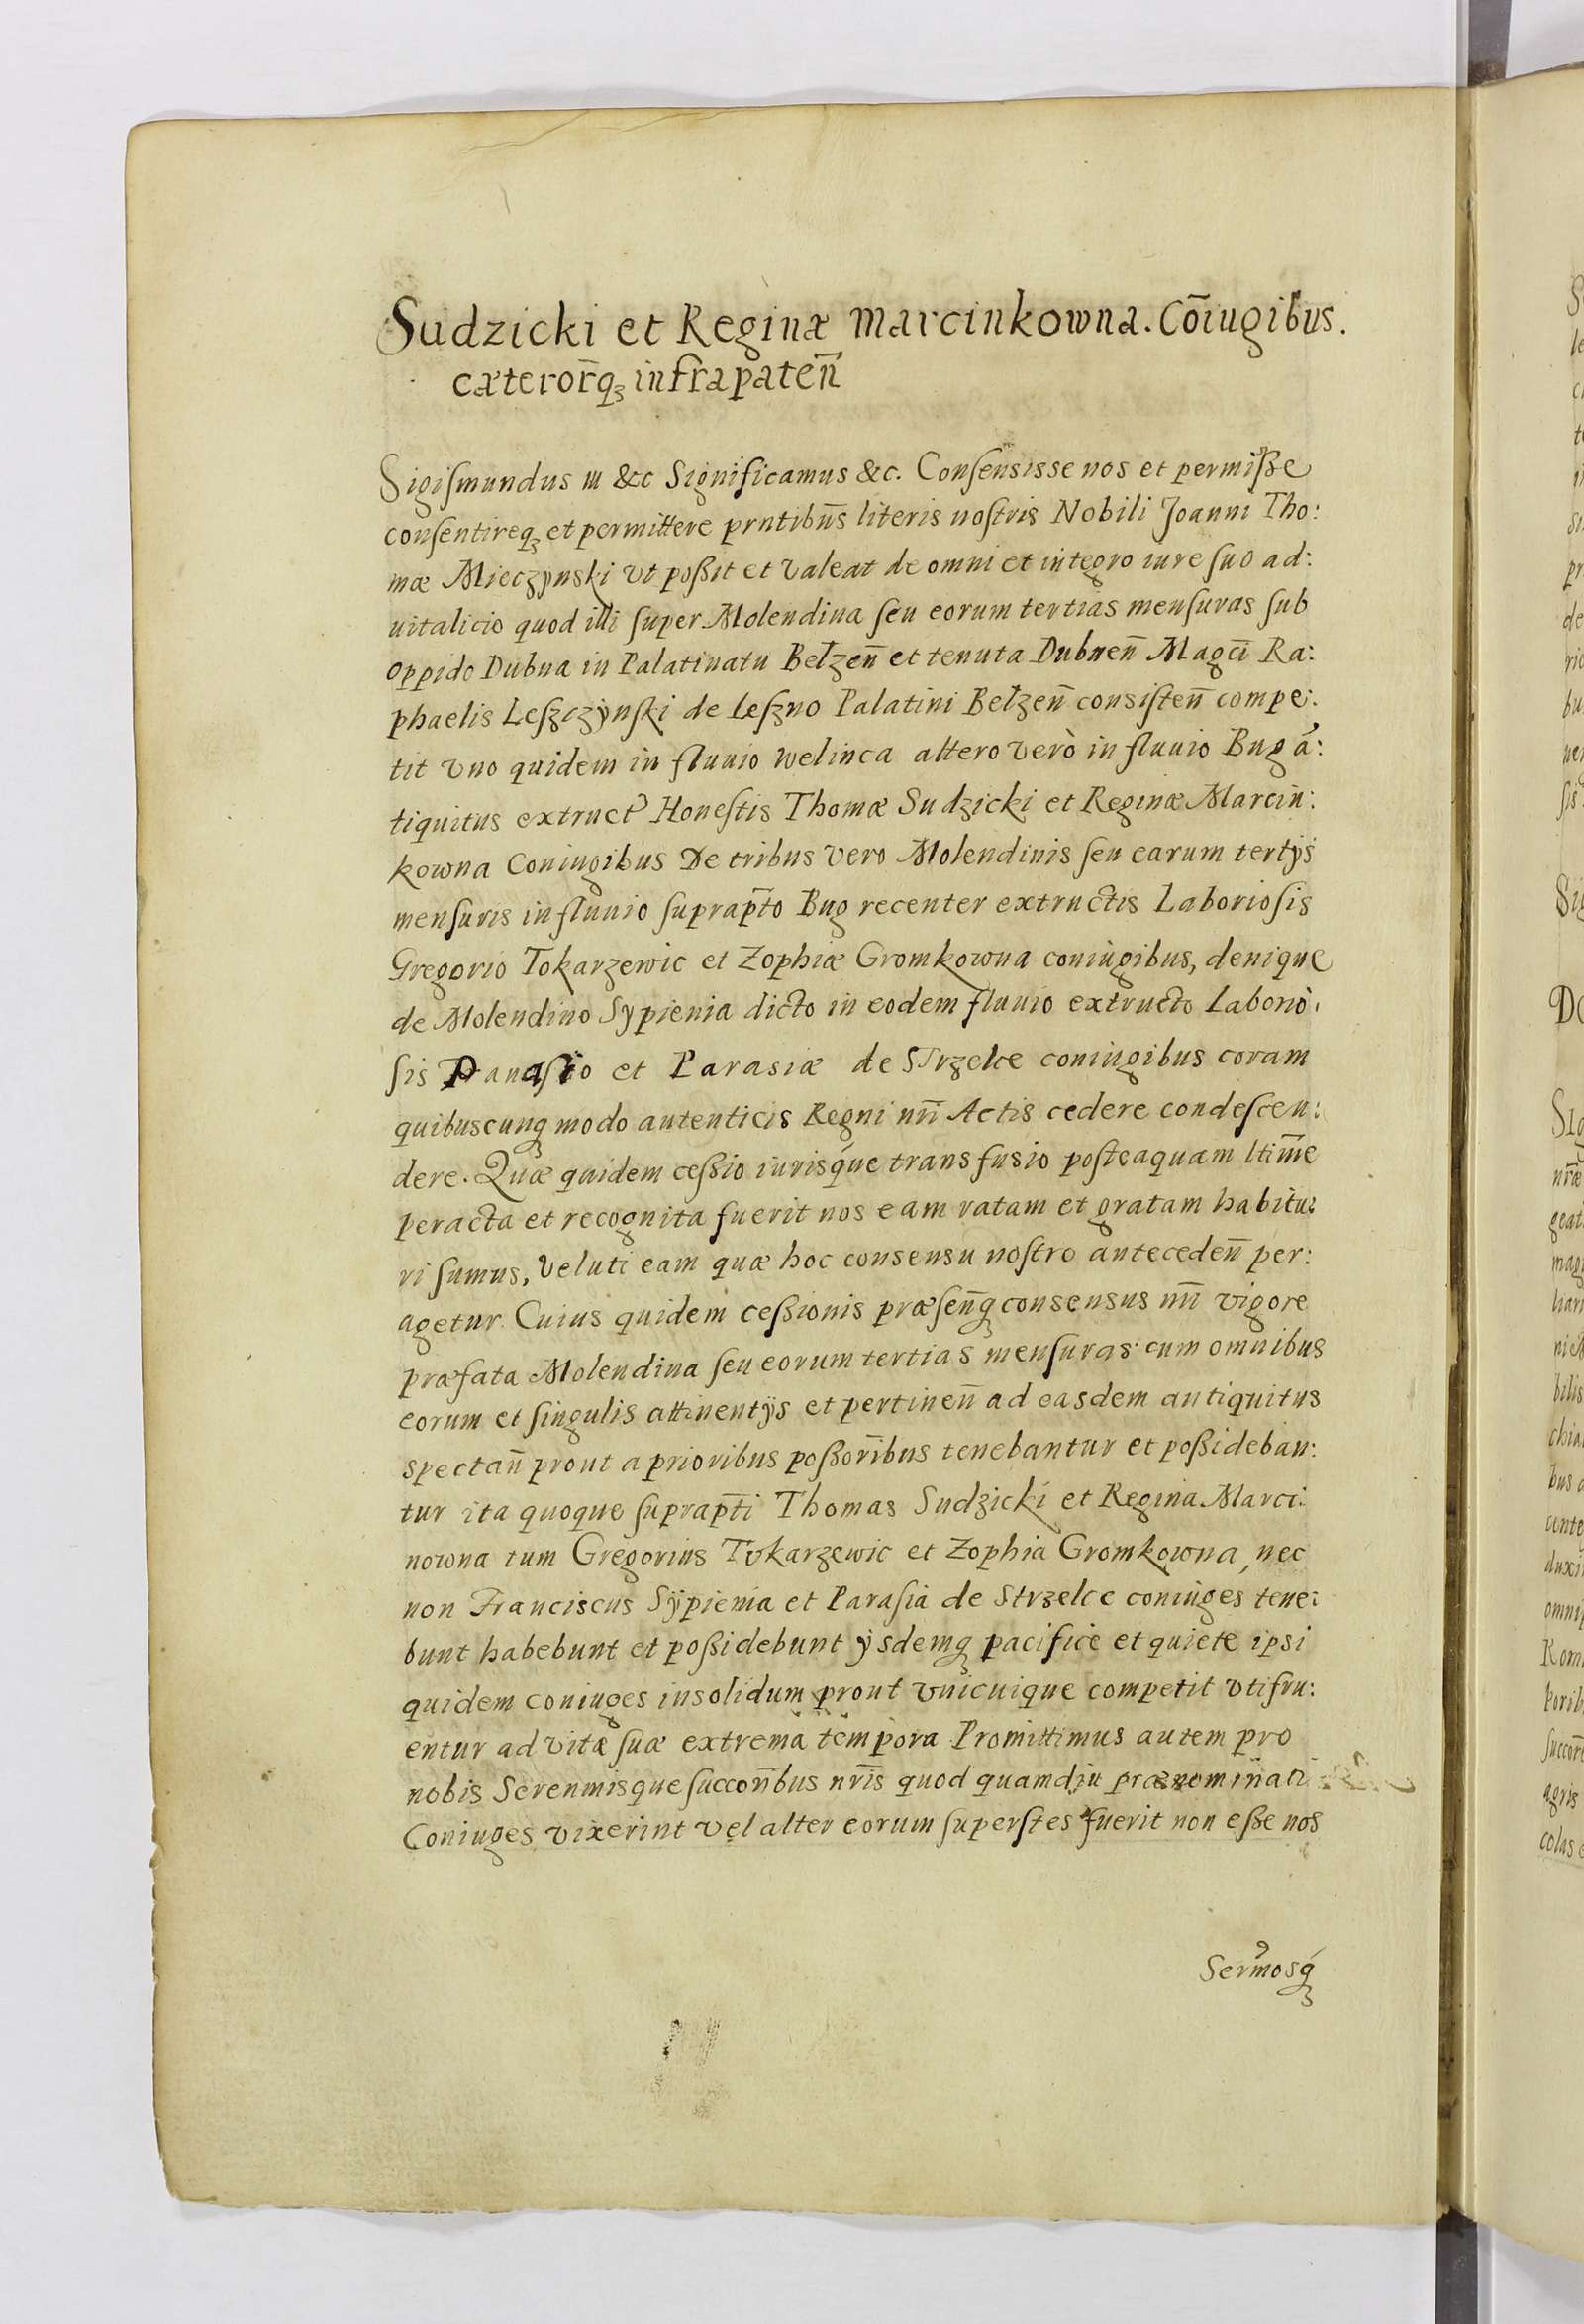 Sudzicki et Reginæ Marcinkowna. Cōiugibus.
cæteror̄q₃ infrapaten̄
Sigiſmundus III &c Significamus &c. Conſensisse nos et permiſße
conſentireq₃ et permittere prntibūs literis noſtris Nobili Joanni Tho:
mæ Mieczynski vt poßit et valeat de omni et integro iure ſuo ad:
vitalicio quod illi ſuper Molendina ſeu eorum tertias menſuras ſub
oppido Dubna in Palatinatu Bełzen̄ et tenuta Dubnen̄ Magci̅ Ra:
phaelis Leſzczÿnſki de Leſzno Palatini Bełzen̄ consiſten̄ compe:
tit vno quidem in fluuio welinca altero verò in fluuio Bug ā:
tiquitus extruct̓ Honeſtis Thomæ Sudzicki et Reginæ Marcin:
kowna Coniugibus De tribus vero Molendinis ſeu earum tertÿs
menſuris in fluuio ſuprap̄to Bug recenter extructis Laborioſis
Gregorio Tokarzewic et Zophiæ Gromkowna coniugibus, denique
de Molendino Sypienia dicto in eodem fluuio extructo Laborio:
ſis Panaſio et Parasiæ de STrzelce coniugibus coram
quibuscunq₃ modo autenticis Regni nr̄i Actis cedere condeſcen:
dere. Quæ quidem ceßio iurisq́ue transfusio poſteaquam ltim̄e
peracta et recognita fuerit nos eam ratam et gratam habitu:
ri ſumus, veluti eam quæ hoc consensu noſtro anteceden̄ per:
agetur. Cuius quidem ceßionis præſen̄q₃ consensus nr̄i vigore
præfata Molendina ſeu eorum tertias menſuras cum omnibus
eorum et ſingulis attinentÿs et pertinen̄ ad easdem antiquitus
spectan̄ prout a prioribus poßor̄ibus tenebantur et poßideban:
tur ita quoque ſuprap̄ti Thomas Sudzicki et Regina Marci:
nowna tum Gregorius Tokarzewic et Zophia Gromkowna, nec
non Franciscus Sÿpienia et Paraſia de Strzelce coniuges tene:
bunt habebunt et poßidebunt ÿsdemq₃ pacifice et quiete ipsi
quidem coniuges insolidum prout vnicuique competit vtifru:
entur ad vitæ ſuæ extrema tempora Promittimus autem pro
nobis Serenmisque ſuccor̄ibus nr̄is quod quamdiu prænominati
Coniuges vixerint vel alter eorum ſuperſtes fuerit non eße nos
Serm̓osq́₃